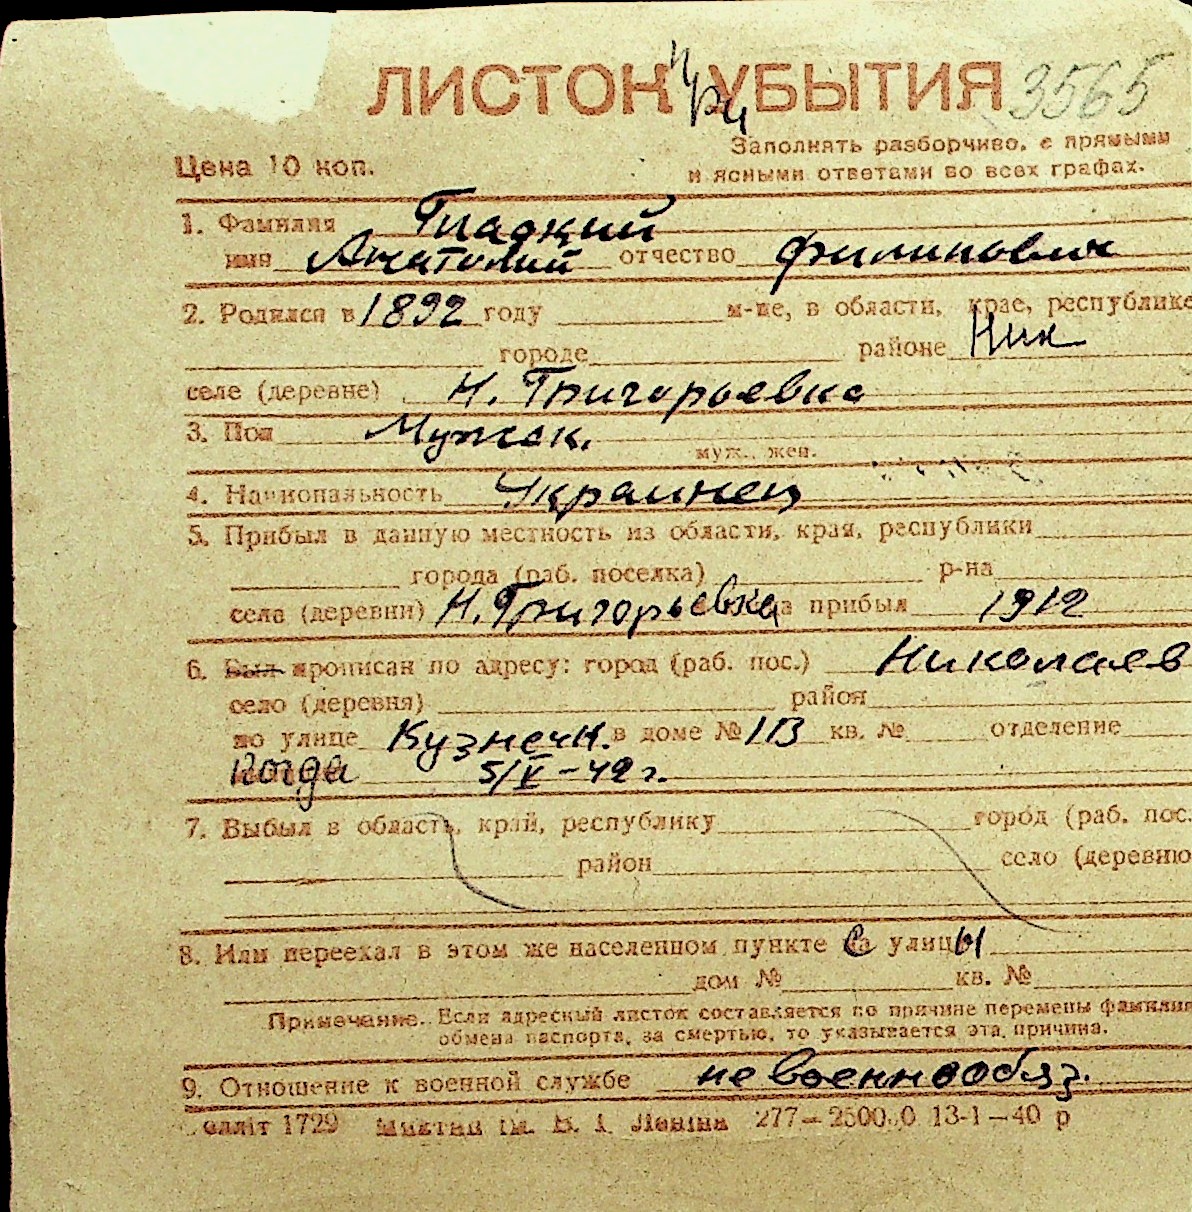 ЛИСТОК при УБЫТИЯ 3565
Цена 10 коп.
Заполнять разборчиво, с прямыми
и ясными ответами во всех графах.
1. Фамилия Гладкий
имя Анатолий отчество Филипович
2. Родился в 1892 году м-це, в области, крае, республике
городе районе Ник
селе (деревне) Н. Григорьевка
3. Пол Мужск.
муж., жен.
4. Национальность Украинец
5. Прибыл в данную местность из области, края, республики
города (раб. поселка) р-на
села (деревни) Н. Григорьевка прибыл 1912
6. Был прописан по адресу: город (раб. пос.) Николаев
село (деревня) район
по улице Кузнечн. в доме № 113 кв. № отделение
Когда 5/V-42 г.
7. Выбыл в область, край, республику город (раб. пос.
район село (деревню
8. Или переехал в этом же населенном пункте с улицы
дом № кв. №
Примечание. Если адресный листок составляется по причине перемены фамилии
обмена паспорта, за смертью, то указывается эта причина.
9. Отношение к военной службе не военнообяз.
1729 Леніна 13-1-40 р